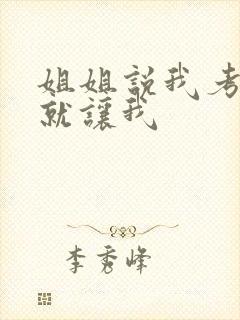 姐姐説我考
就讓我
李秀峰